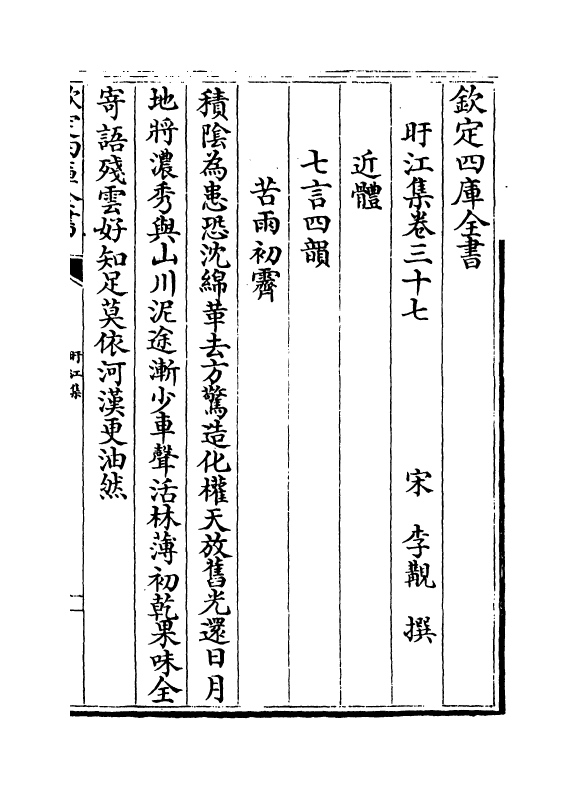 欽定四庫全書
旴江集卷三十七　宋　李覯　撰
近體
七言四韻
苦雨初霽
積陰為患恐沈綿革去方驚造化權天放舊光還日月
地將濃秀與山川泥途漸少車聲活林薄初乾果味全
寄語殘雲好知足莫依河漢更油然
欽定四庫全書
旴江集